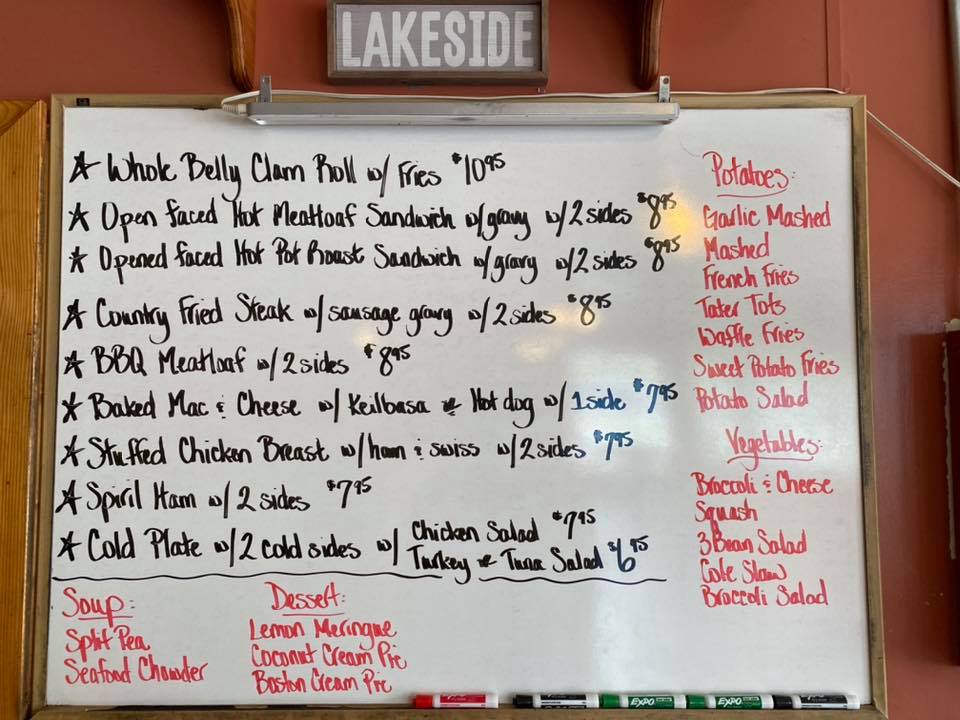 LAKESIDE
☆ Whole Belly Clam Roll w/ Fries $10.95
☆ Open Faced Hot Meatloaf Sandwich w/gravy w/2 sides $8.95
☆ Opened Faced Hot Pot Roast Sandwich w/gravy w/2 sides $8.95
☆ Country Fried Steak w/sausage gravy w/2 sides $8.95
☆ BBQ Meatloaf w/2 sides $8.95
☆ Baked Mac & Cheese w/ Keilbasa or Hot dog w/ 1 side $7.95
☆ Stuffed Chicken Breast w/ham & swiss w/2 sides $7.95
☆ Spiril Ham w/ 2 sides $7.95
☆ Cold Plate w/2 cold sides w/ Chicken Salad $7.95
Turkey or Tuna Salad $6.95
Potatoes:
Garlic Mashed
Mashed
French Fries
Tater Tots
Waffle Fries
Sweet Potato Fries
Potato Salad
Vegetables:
Broccoli & Cheese
Squash
3 Bean Salad
Cole Slaw
Broccoli Salad
Soup:
Split Pea
Seafood Chowder
Dessert:
Lemon Meringue
Coconut Cream Pie
Boston Cream Pie
EXPO
EXPO